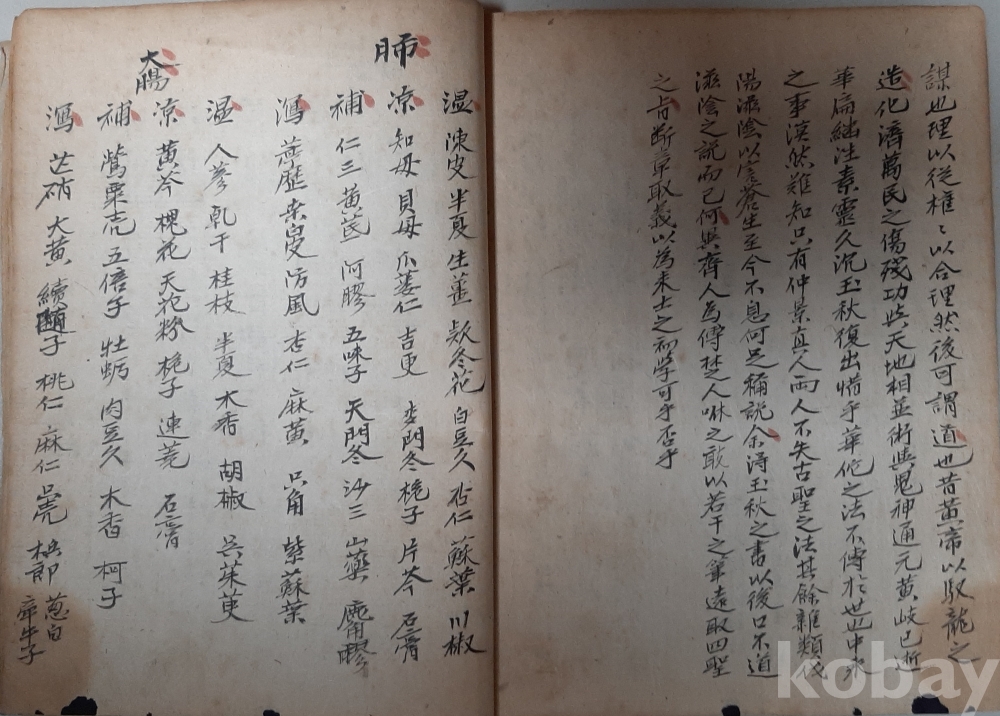 謀也理以從權〻以合理然後可謂道也昔黃帝以馭龍之
造化濟萬民之傷殘功與天地相並術與鬼神通元黃岐已逝
華扁繼往素靈久沉玉秋復出惜乎華佗之法不傳於世中末
之事漠然難知只有仲景真人兩人不失古聖之法其餘雜類伐
陽滋陰以害蒼生至今不息何足稱說余得玉秋之書以後口不道
滋陰之說而已何異齊人為傅楚人咻之敢以若干之筆遠取四聖
之旨斷章取義以為末士之初學可乎否乎
肺
溫 陳皮 半夏 生薑 款冬花 白豆久 砂仁 蘇葉 川椒
凉 知母 貝母 爪蔞仁 吉更 麥門冬 梔子 片芩 石膏
補 仁三 黃芪 阿膠 五味子 天門冬 沙三 山藥 鹿角膠
瀉 葶歷 桑白皮 防風 杏仁 麻黃 只角 紫蘇葉
大腸
溫 人參 乹干 桂枝 半夏 木香 胡椒 吳茱萸
凉 黃芩 槐花 天花粉 梔子 連蕘 石膏
補 鶯粟壳 五倍子 牡蛎 肉豆久 木香 柯子
瀉 芒硝 大黃 續隨子 桃仁 麻仁 枳壳 梹郎 葱白 牽牛子
kobay